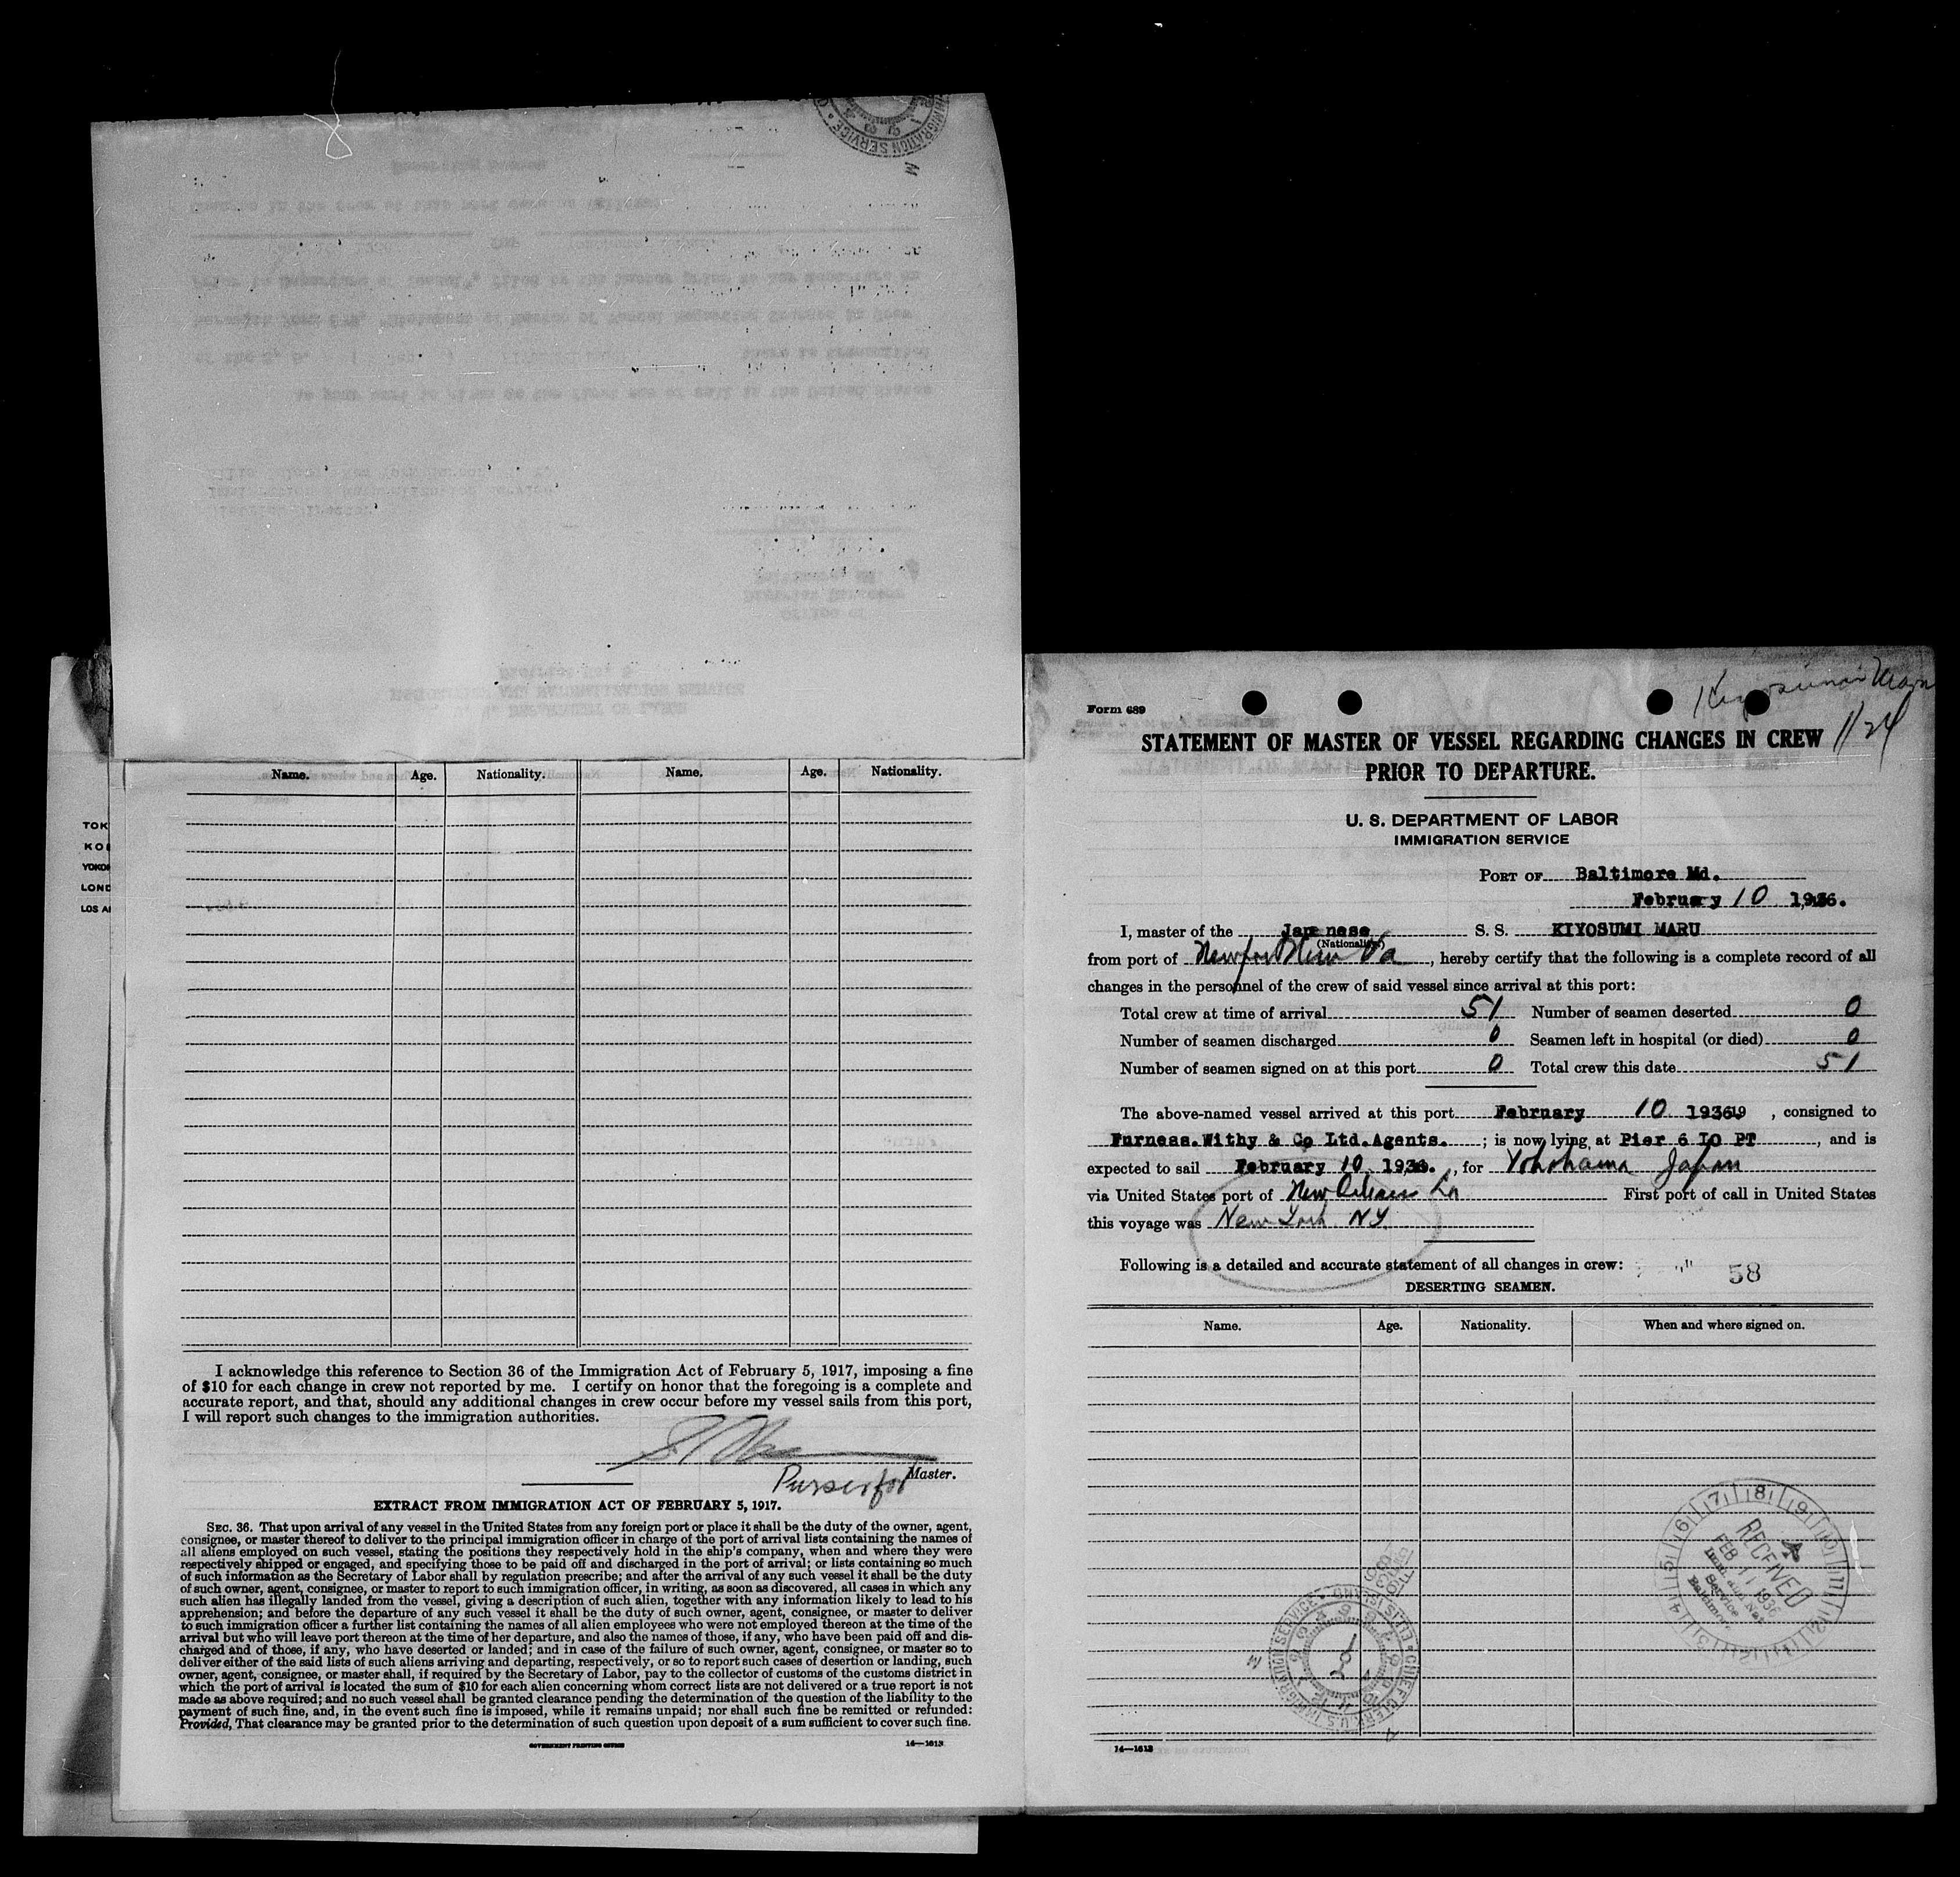 TOK
KO
YOKO
LOND
LOS A
Name. Age. Nationality. Name. Age. Nationality.
I acknowledge this reference to Section 36 of the Immigration Act of February 5, 1917, imposing a fine
of $10 for each change in crew not reported by me. I certify on honor that the foregoing is a complete and
accurate report, and that, should any additional changes in crew occur before my vessel sails from this port,
I will report such changes to the immigration authorities.
Purser for Master.
EXTRACT FROM IMMIGRATION ACT OF FEBRUARY 5, 1917.
SEC. 36. That upon arrival of any vessel in the United States from any foreign port or place it shall be the duty of the owner, agent,
consignee, or master thereof to deliver to the principal immigration officer in charge of the port of arrival lists containing the names of
all aliens employed on such vessel, stating the positions they respectively hold in the ship's company, when and where they were
respectively shipped or engaged, and specifying those to be paid off and discharged in the port of arrival; or lists containing so much
of such information as the Secretary of Labor shall by regulation prescribe; and after the arrival of any such vessel it shall be the duty
of such owner, agent, consignee, or master to report to such immigration officer, in writing, as soon as discovered, all cases in which any
such alien has illegally landed from the vessel, giving a description of such alien, together with any information likely to lead to his
apprehension; and before the departure of any such vessel it shall be the duty of such owner, agent, consignee, or master to deliver
to such immigration officer a further list containing the names of all alien employees who were not employed thereon at the time of the
arrival but who will leave port thereon at the time of her departure, and also the names of those, if any, who have been paid off and dis-
charged and of those, if any, who have deserted or landed; and in case of the failure of such owner, agent, consignee, or master so to
deliver either of the said lists of such aliens arriving and departing, respectively, or so to report such cases of desertion or landing, such
owner, agent, consignee, or master shall, if required by the Secretary of Labor, pay to the collector of customs of the customs district in
which the port of arrival is located the sum of $10 for each alien concerning whom correct lists are not delivered or a true report is not
made as above required; and no such vessel shall be granted clearance pending the determination of the question of the liability to the
payment of such fine, and, in the event such fine is imposed, while it remains unpaid; nor shall such fine be remitted or refunded:
Provided, That clearance may be granted prior to the determination of such question upon deposit of a sum sufficient to cover such fine.
GOVERNMENT PRINTING OFFICE 14—1613
Kiyosumi Maru
Form 689
1/24
STATEMENT OF MASTER OF VESSEL REGARDING CHANGES IN CREW
PRIOR TO DEPARTURE.
U. S. DEPARTMENT OF LABOR
IMMIGRATION SERVICE
PORT OF Baltimore Md.
February 10 1936.
I, master of the Japanese S. S. KIYOSUMI MARU
(Nationality)
from port of Newport News Va, hereby certify that the following is a complete record of all
changes in the personnel of the crew of said vessel since arrival at this port:
Total crew at time of arrival 51 Number of seamen deserted 0
Number of seamen discharged 0 Seamen left in hospital (or died) 0
Number of seamen signed on at this port 0 Total crew this date 51
The above-named vessel arrived at this port February 10 1936 19 , consigned to
Furness.Withy & Co Ltd.Agents. ; is now lying at Pier 6 LO PT , and is
expected to sail February 10 1936. , for Yokohama Japan
via United States port of New Orleans La First port of call in United States
this voyage was New York NY
Following is a detailed and accurate statement of all changes in crew: 58
DESERTING SEAMEN.
Name. Age. Nationality. When and where signed on.
RECEIVED
FEB 11 1936
Imm. and Nat.
Service
Baltimore
CHIEF CLERK, U.S. IMMIGRATION SERVICE • ELLIS ISLAND
14—1613